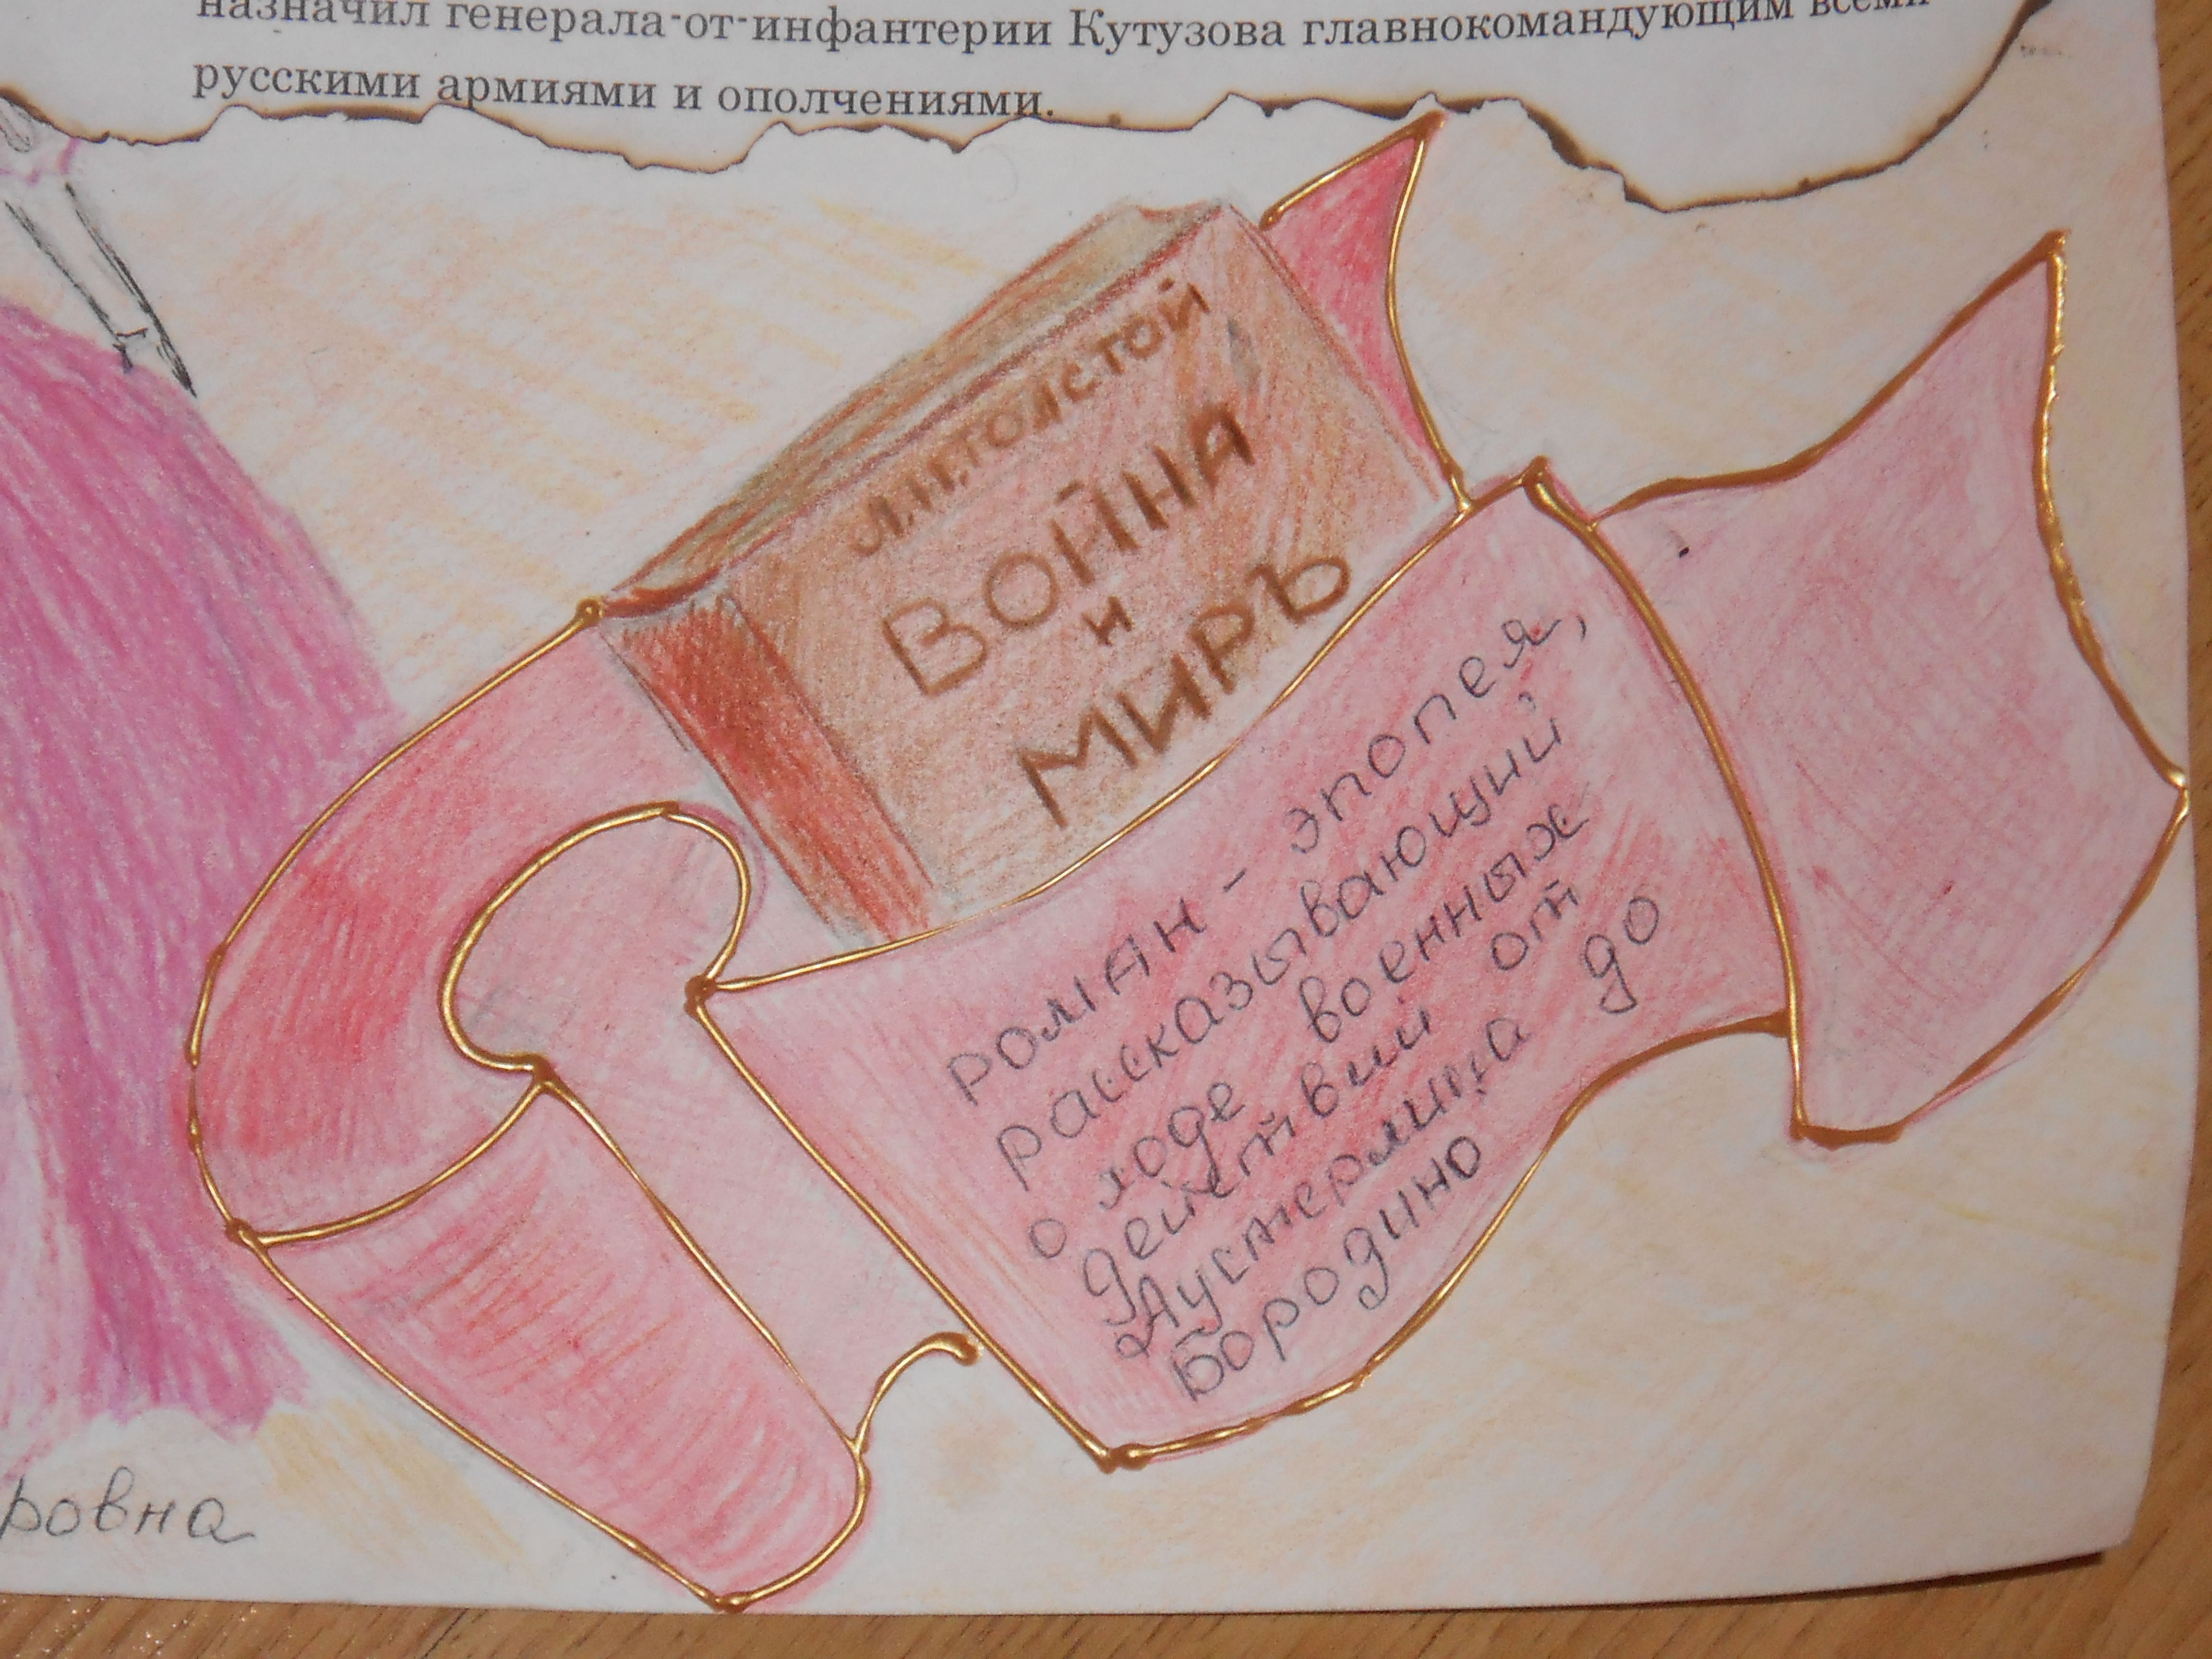 назначил генерала-от-инфантерии Кутузова главнокомандующим всеми
русскими армиями и ополчениями.
Л.Н.ТОЛСТОЙ
ВОЙНА
И
МИРЪ
роман - эпопея,
рассказывающий
о ходе военных
действий от
Аустерлица до
Бородино
ровна